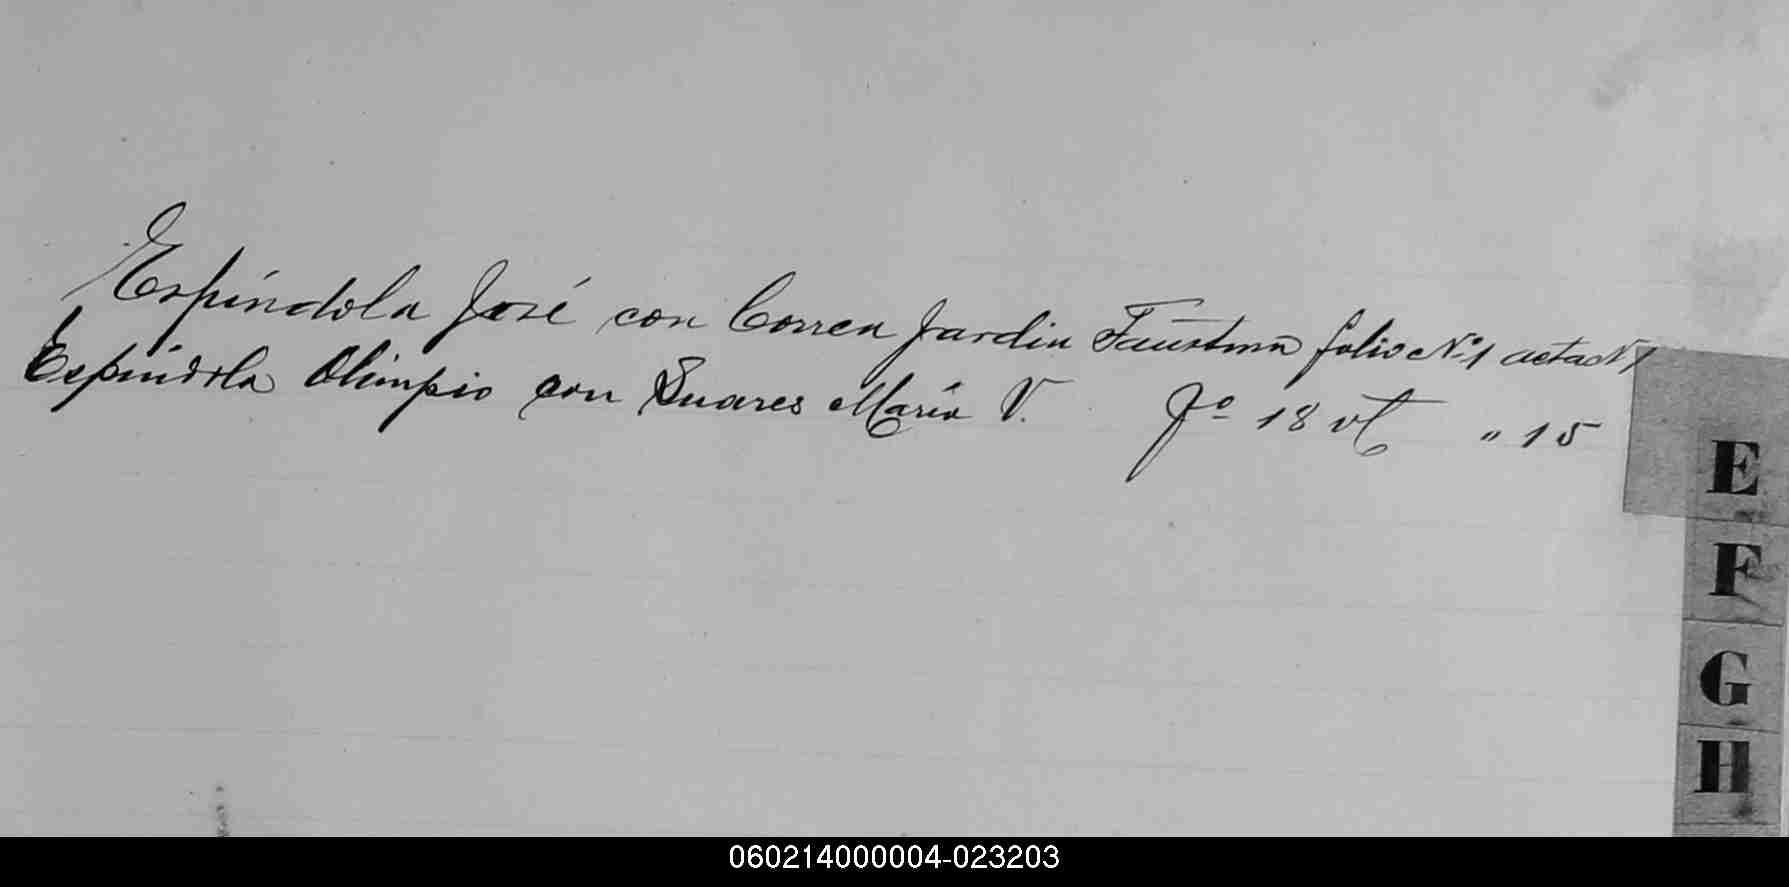 Espíndola José con Correa Jardin Faustina folio Nº 1 acta Nº 1
Espíndola Olimpio con Suares María V. Fº 18 vt " 15
E
F
G
H
060214000004-023203